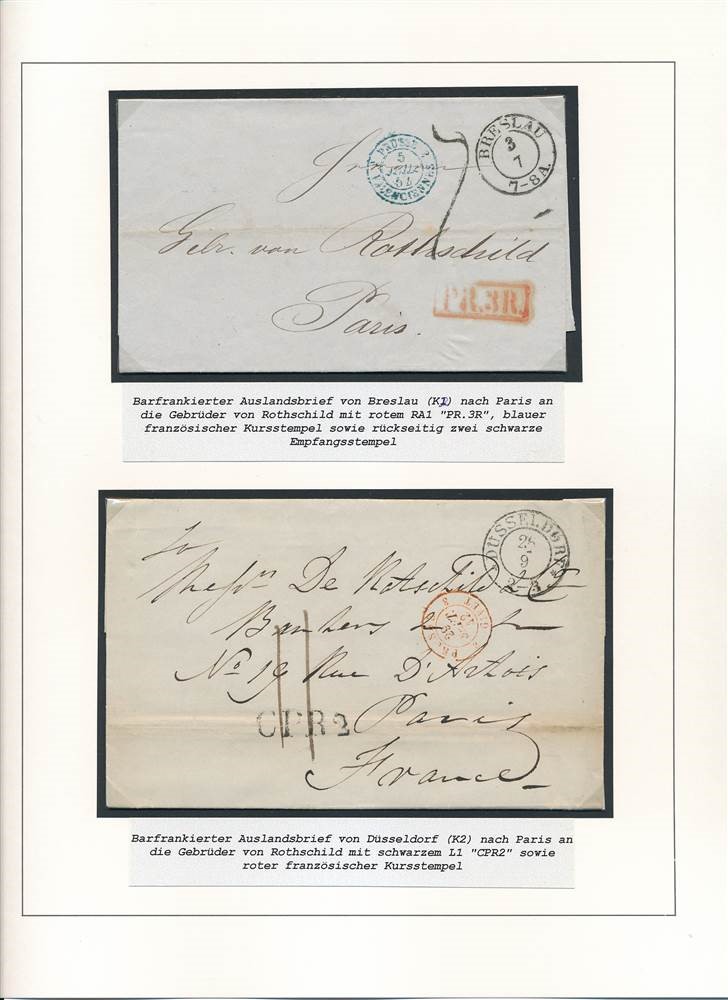 BRESLAU
3
7
7-8 A.
PRUSSE 2
5
JUIL
54
VALENCIENNES
7
Gebr. von Rothschild
Paris.
PR.3R.
Barfrankierter Auslandsbrief von Breslau (K2) nach Paris an
die Gebrüder von Rothschild mit rotem RA1 "PR.3R", blauer
französischer Kursstempel sowie rückseitig zwei schwarze
Empfangsstempel
DÜSSELDORF
9
To
Messrs De Rotschild &
Bankers
No 19 Rue D'Artois
Paris
France
CPR2
Barfrankierter Auslandsbrief von Düsseldorf (K2) nach Paris an
die Gebrüder von Rothschild mit schwarzem L1 "CPR2" sowie
roter französischer Kursstempel